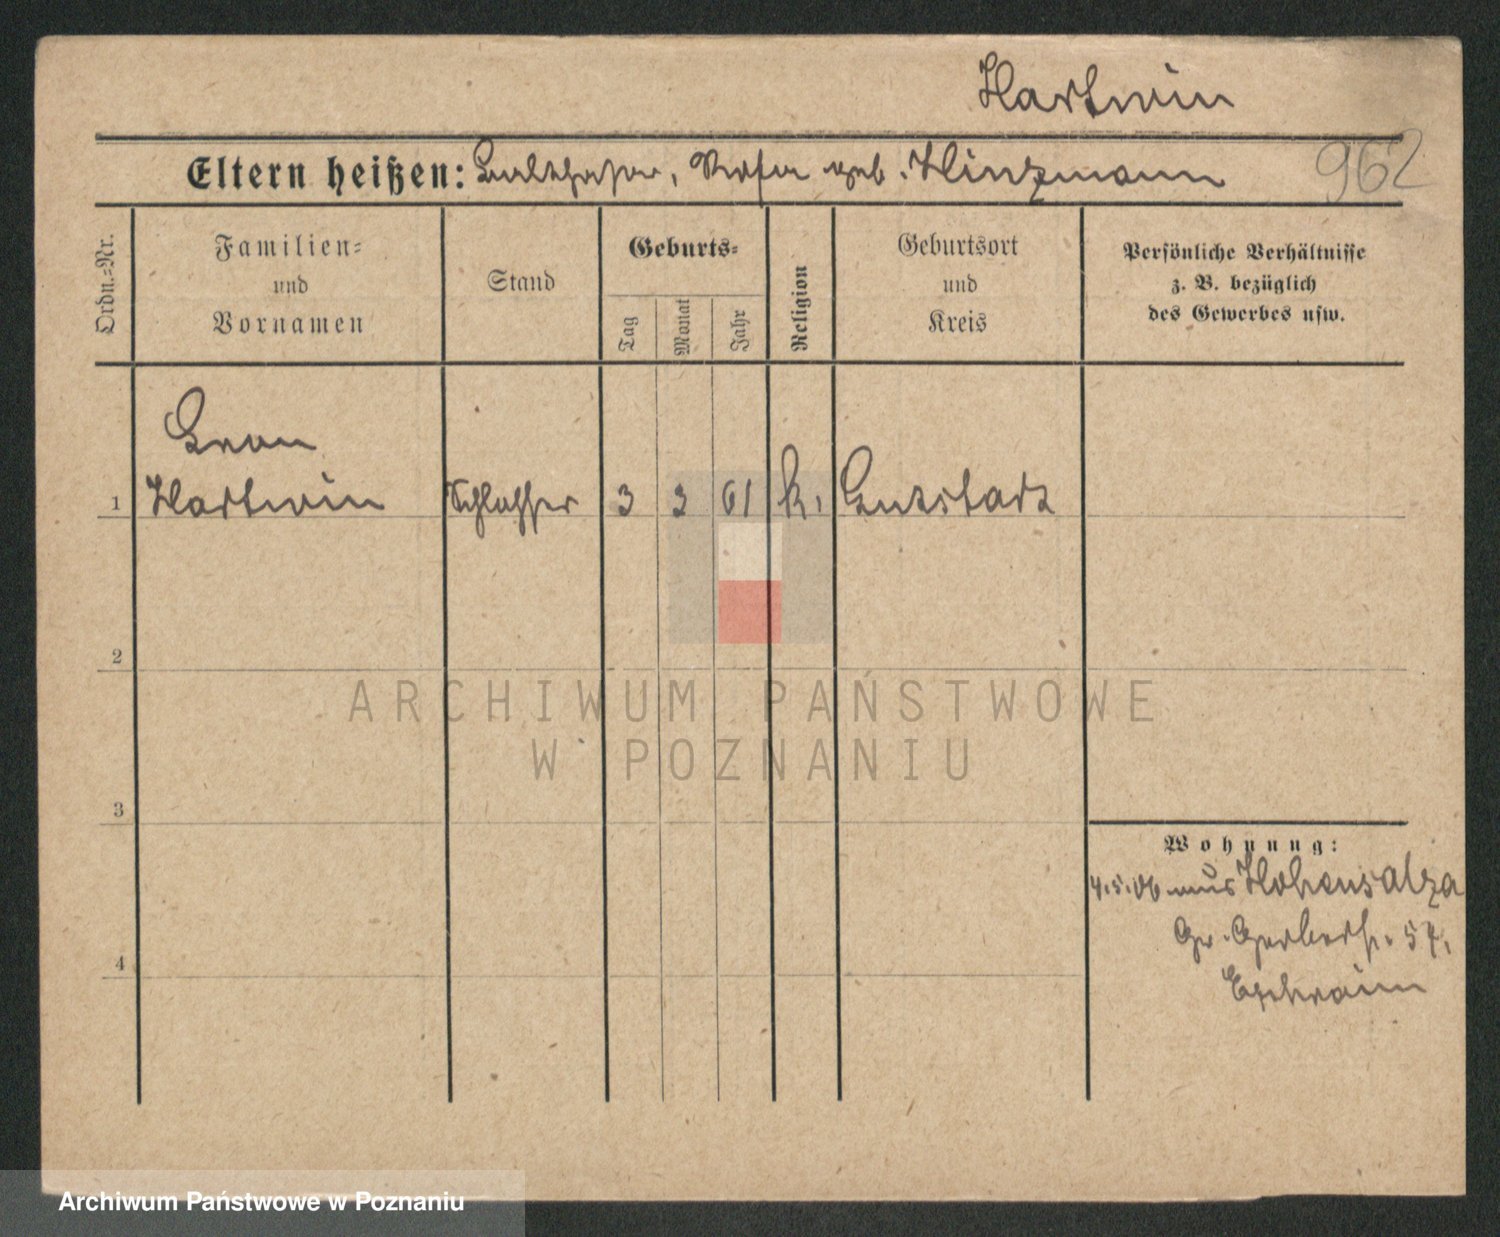 Hartwin
Eltern heißen: Balthasar, Rosa geb. Hinzmann
962
Ordn.=Nr.
Familien=
und
Vornamen
Stand
Geburts=
Tag
Monat
Jahr
Religion
Geburtsort
und
Kreis
Persönliche Verhältnisse
z. B. bezüglich
des Gewerbes usw.
Leon
1 Hartwin Schlosser 3 3 61 k. Gutstadt
2
ARCHIWUM PAŃSTWOWE
W POZNANIU
3
Wohnung:
4.5.06 aus Hohensalza
Gr. Gerberstr. 57,
Ephraim
4
Archiwum Państwowe w Poznaniu